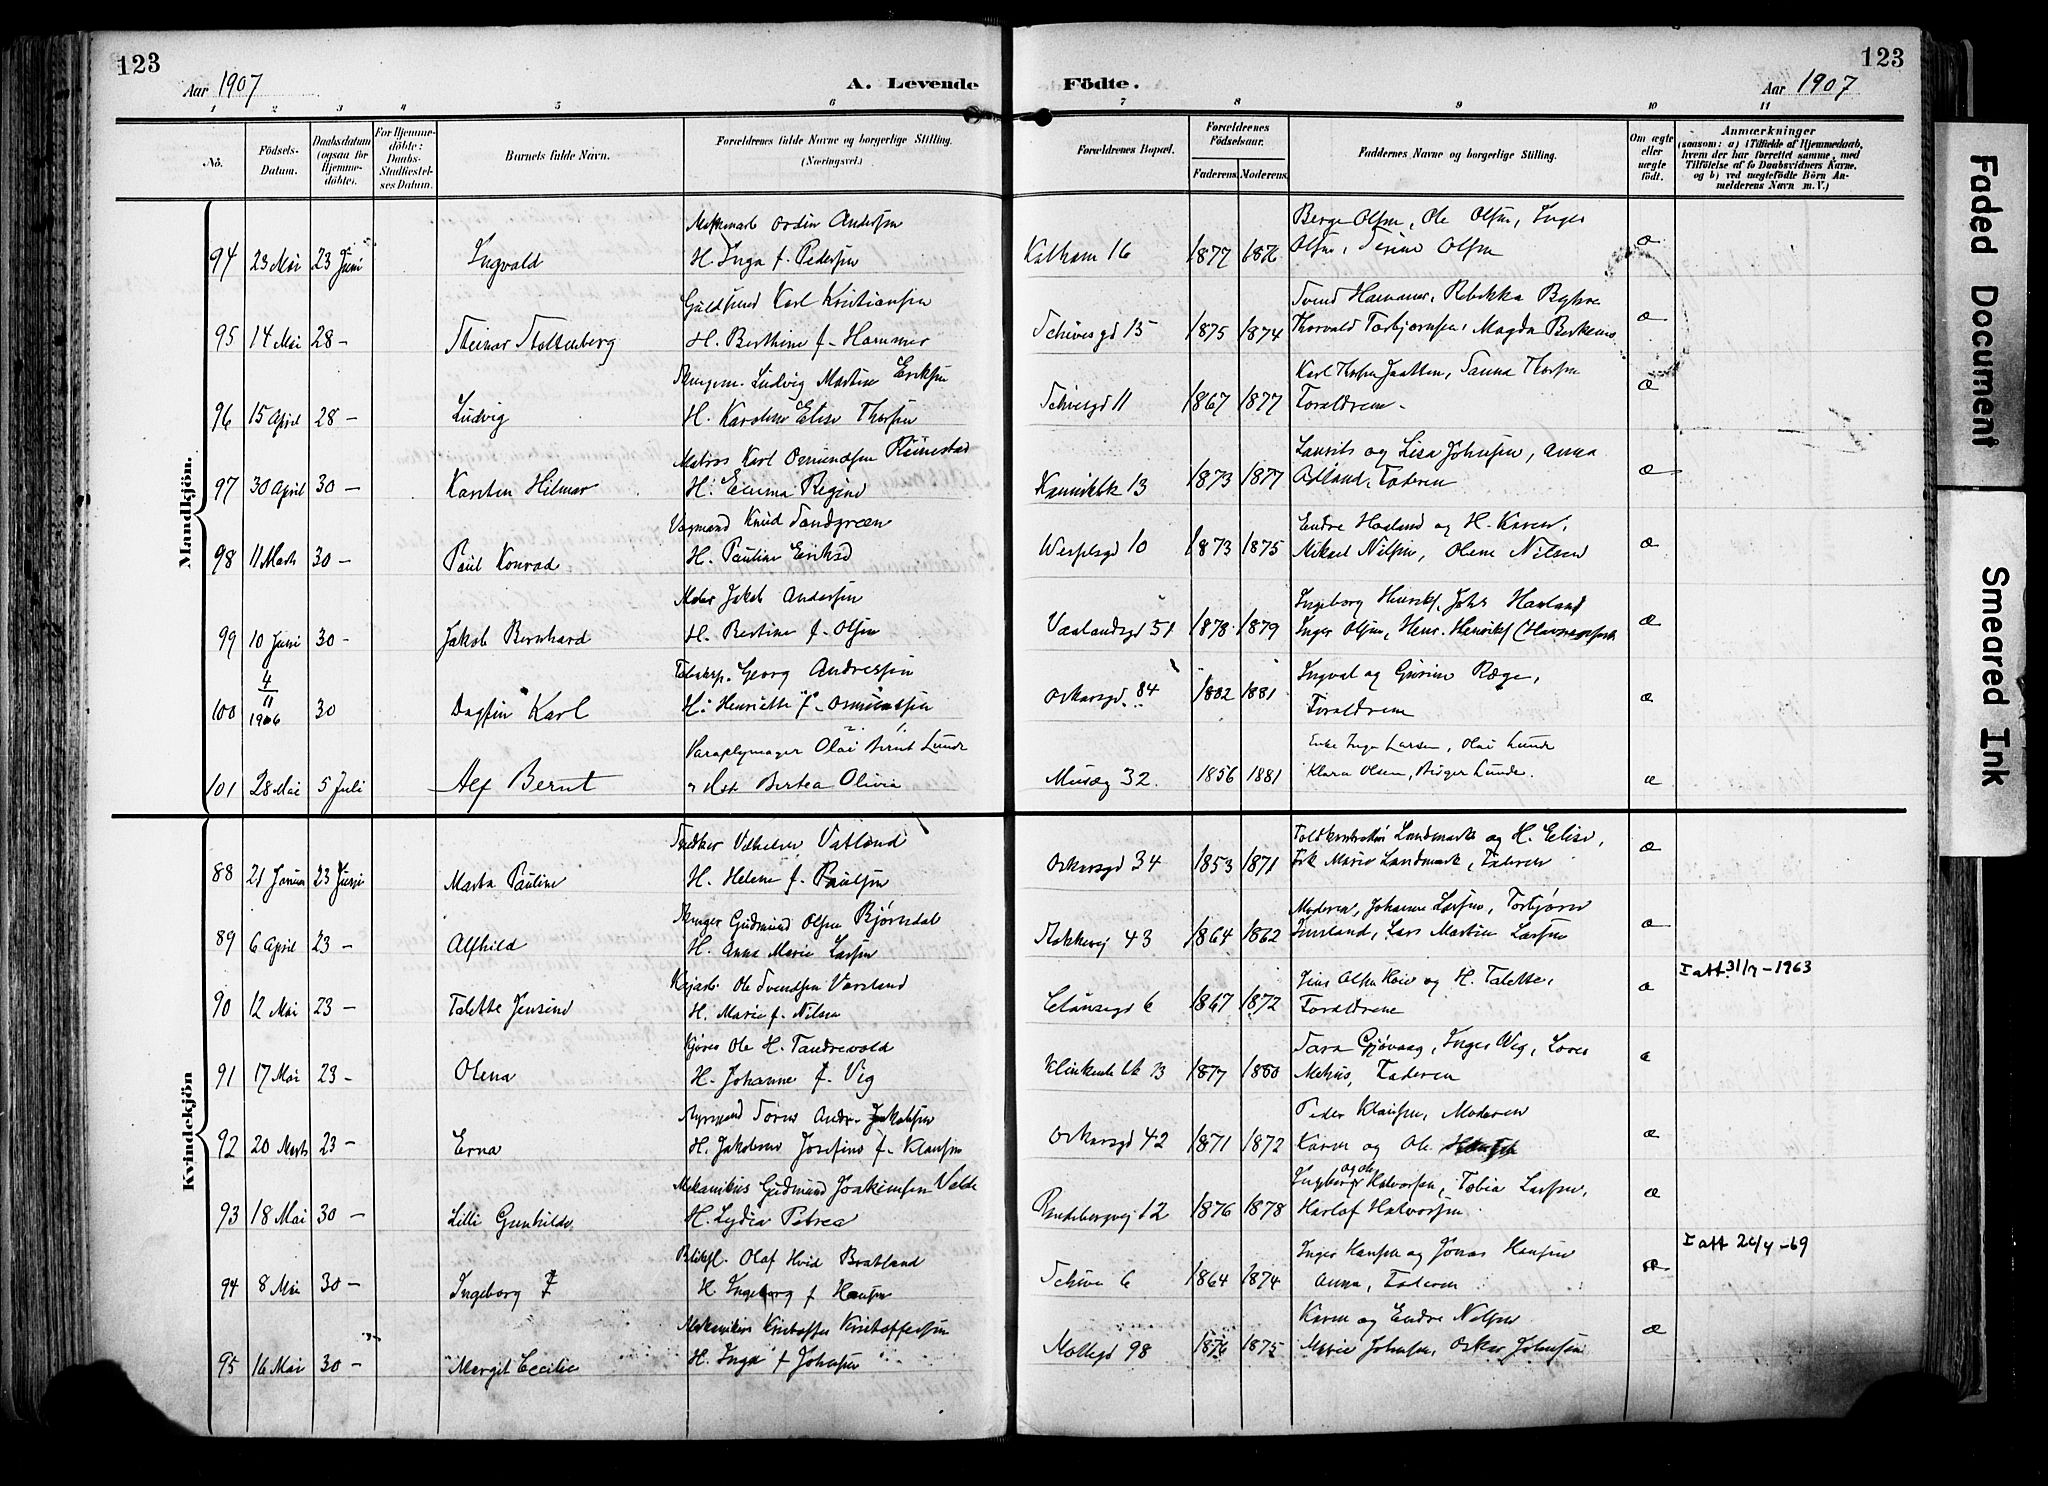 123
Aar 1907
A. Levende
Födte.
Aar 1907
123
1 2 3 4 5 6 7 8 9 10 11
Nö.
Födsels-Datum.
Daabsdatum (ogsaa for Hjemmedöbte).
For Hjemmedöbte: Daabs-Stadfæstelses Datum.
Barnets fulde Navn.
Forældrenes fulde Navne og borgerlige Stilling. (Næringsvei.)
Forældrenes Bopæl.
Forældrenes Födselsaar.
Faderens. Moderens.
Faddernes Navne og borgerlige Stilling.
Om ægte eller uægte födt.
Anmærkninger
(saasom: a) i Tilfælde af Hjemmedaab, hvem der har forrettet samme, med Tilföielse af to Daabsvidners Navne, og b) ved uægtefödte Börn Anmelderens Navn m. V.)
Mandkjön.
Andersen Berge Olsen, Ole Olsen, Inger
94 23 Mai 23 Juni Ingvald H. Inga f. Pedersen 16 1877 1876 Olsen, Serine Olsen æ
Guldsmed Karl Kristiansen Svend Hammer, Rebekka
95 14 Mai 28 – Steinar Stoltenberg H. Berthine f. Hammer Schivesgd 15 1875 1874 Thorvald Torbjørnsen, Magda æ
Ludvig Martin Eriksen Karl Jaatten, Thorsen
96 15 April 28 – Ludvig H. Karoline Elise Thorsen Schivesgd 11 1867 1877 Forældrene. æ
Matros Karl Osmundsen Reinestad Laurits og Lisa Johnsen, Anna
97 30 April 30 – Karsten Hilmar H. Emma Regine 13 1873 1877 Adland, Faderen æ
Vognmand Knud Sandgreen Endre Haaland og H. Karen,
98 11 Marts 30 – Paul Konrad H. Pauline 10 1873 1875 Mikael Nilsen, Olene Nilsen æ
Maler Jakob Andersen Ingeborg Haaland
99 10 Juni 30 – Jakob Bernhard H. Bertine f. Olsen Vaalandsgd 51 1878 1879 Inger Olsen, æ
Georg Andressen Ingval og Rege,
100 4/11 1906 30 Dagfin Karl H. Henriette f. Osmundsen Oskarsgd. 84 1882 1881 Forældrene æ
Paraplymager Olai Bernt Lunde Enke Inga Larsen, Olai Lunde
101 28 Mai 5 Juli Alf Bernt Bertea Olivia Musæg 32. 1856 1881 Klara Olsen, Birger Lunde. æ
Kvindekjön
Vilhelm Vatland Landmark og H. Elise,
88 21 Januar 23 Juni Marta Pauline H. Helene f. Paulsen Oskarsgd 34 1853 1871 Frk Marie Landmark, Faderen æ
Gudmund Olsen Bjørndal Moderen, Johanne Larsen, Torbjørn
89 6 April 23 – Alfhild H. Anna Marie Larsen Stokkavej 43 1864 1862 Lars Martin Larsen æ
Ole Svendsen Olsen og H. Talette, I att 31/7 – 1963
90 12 Mai 23 – Talette Jensine H. Marie f. Nilsen 6 1867 1872 Forældrene æ
Kjører Ole H. Tandrevold Sara Gjøvaag, Inger Vig,
91 17 Mai 23 – Olena H. Johanne f. Vig 13 1877 1880 Faderen æ
Andr. Jakobsen Peder Klausen, Moderen
92 20 Marts 23 – Erna H. Jakobine Josefine f. Klausen Oskarsgd 42 1871 1872 Karen og Ole Hansen æ
Mekanikus Gudmund Joakimsen Velde Ingeborg og Ole Halvorsen, Tobia Larsen,
93 18 Mai 30 – Lilli Gunhilde H. Lydia Petrea Randebergvej 12 1876 1878 Harlof Halvorsen æ
Olaf Hvid Bratland Inger Hansen og Jonas Hansen I att 26/4 – 69
94 8 Mai 30 – Ingeborg H Ingeborg f Hansen 6 1864 1874 Anna, Faderen æ
Mekanikus Kristoffer Kristoffersen Karen og Endre Nilsen
95 16 Mai 30 – Margit Cecilie H. Inga f Johnsen 98 1876 1875 Marie Johnsen, Oskar Johnsen æ
Faded Document
Smeared Ink